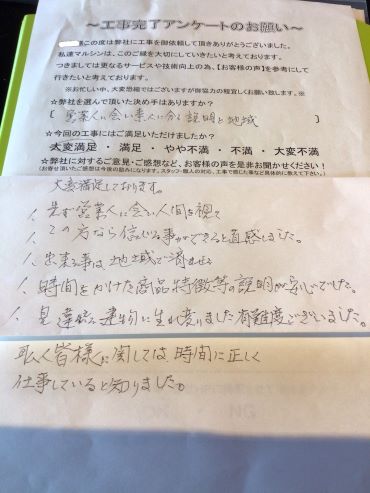 ～工事完了アンケートのお願い～
様この度は弊社に工事を御依頼して頂きありがとうございました。
私達マルシンは、このご縁を大切にしていきたいと考えております。
つきましては更なるサービスや技術向上の為、【お客様の声】を参考にして
行きたいと考えております。
※お忙しい中、大変恐縮ではございますが御協力の程宜しくお願い致します。※
☆弊社を選んで頂いた決め手はありますか？
[営業人に会い素人に分る説明と地域]
☆今回の工事にはご満足いただけましたか？
大変満足・満足・やや不満・不満・大変不満
☆弊社に対するご意見・ご感想など、お客様の声を是非お聞かせください！
(お寄せ頂いたご感想は今後の励みになります。スタッフ・職人の対応、工事で感じた事など具体的に教えて下さい。)
大変満足しております。
1、先ず営業人に会い人間を視て
1、この方なら信じる事ができると直感しました。
1、出来る事は地域で済ませる
1、時間をかけた商品特徴等の説明が安心でした。
1、見違える建物に生れ変りました有難度ございました。
職人皆様に関しては時間に正しく
仕事していると知りました。